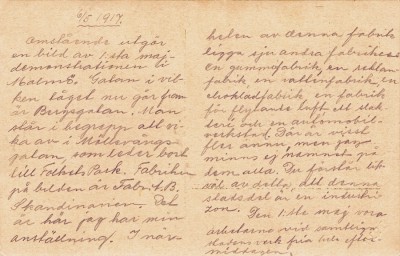 6/5 1917.
Omstående utgör
en bild av 1sta maj-
demonstrationen i
Malmö. Gatan i vil-
ken tåget nu går fram
är Bergsgatan. Man
står i begrepp att vi-
ka av i Möllevångs-
gatan, som leder bort
till Folkets Park. Fabriken
på bilden är Fabr. A.B.
Skandinavien. Det
är här jag har min
anställning. I när-
heten av denna fabrik
ligga sju andra fabriker:
en gummifabrik, en
fabrik, en vattenfabrik, en
chokladfabrik, en fabrik
för flytande luft, ett slak
teri och en automobil-
verkstad. Där är visst
fler ännu, men jag
minns ej namnet på
dem alla. Du förstår lik-
väl av detta, att denna
stadsdel är en industri
zon. Den 1ste maj va
arbetarne vid samtliga
stadens verk fria hela efter-
middagen.